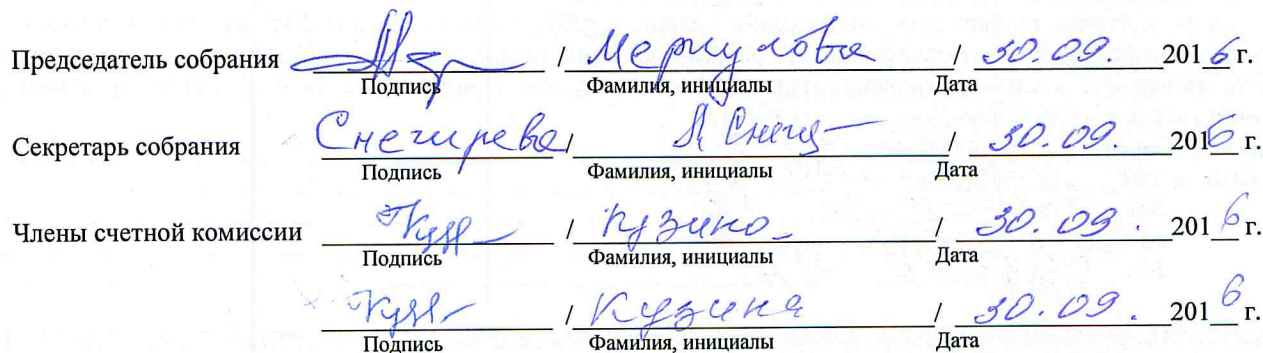 Председатель собрания / Меркулова / 30.09. 2016 г.
Подпись Фамилия, инициалы Дата
Секретарь собрания Снегирева / / 30.09. 2016 г.
Подпись Фамилия, инициалы Дата
Члены счетной комиссии / Кузино / 30.09. 2016 г.
Подпись Фамилия, инициалы Дата
/ Кузина / 30.09. 2016 г.
Подпись Фамилия, инициалы Дата